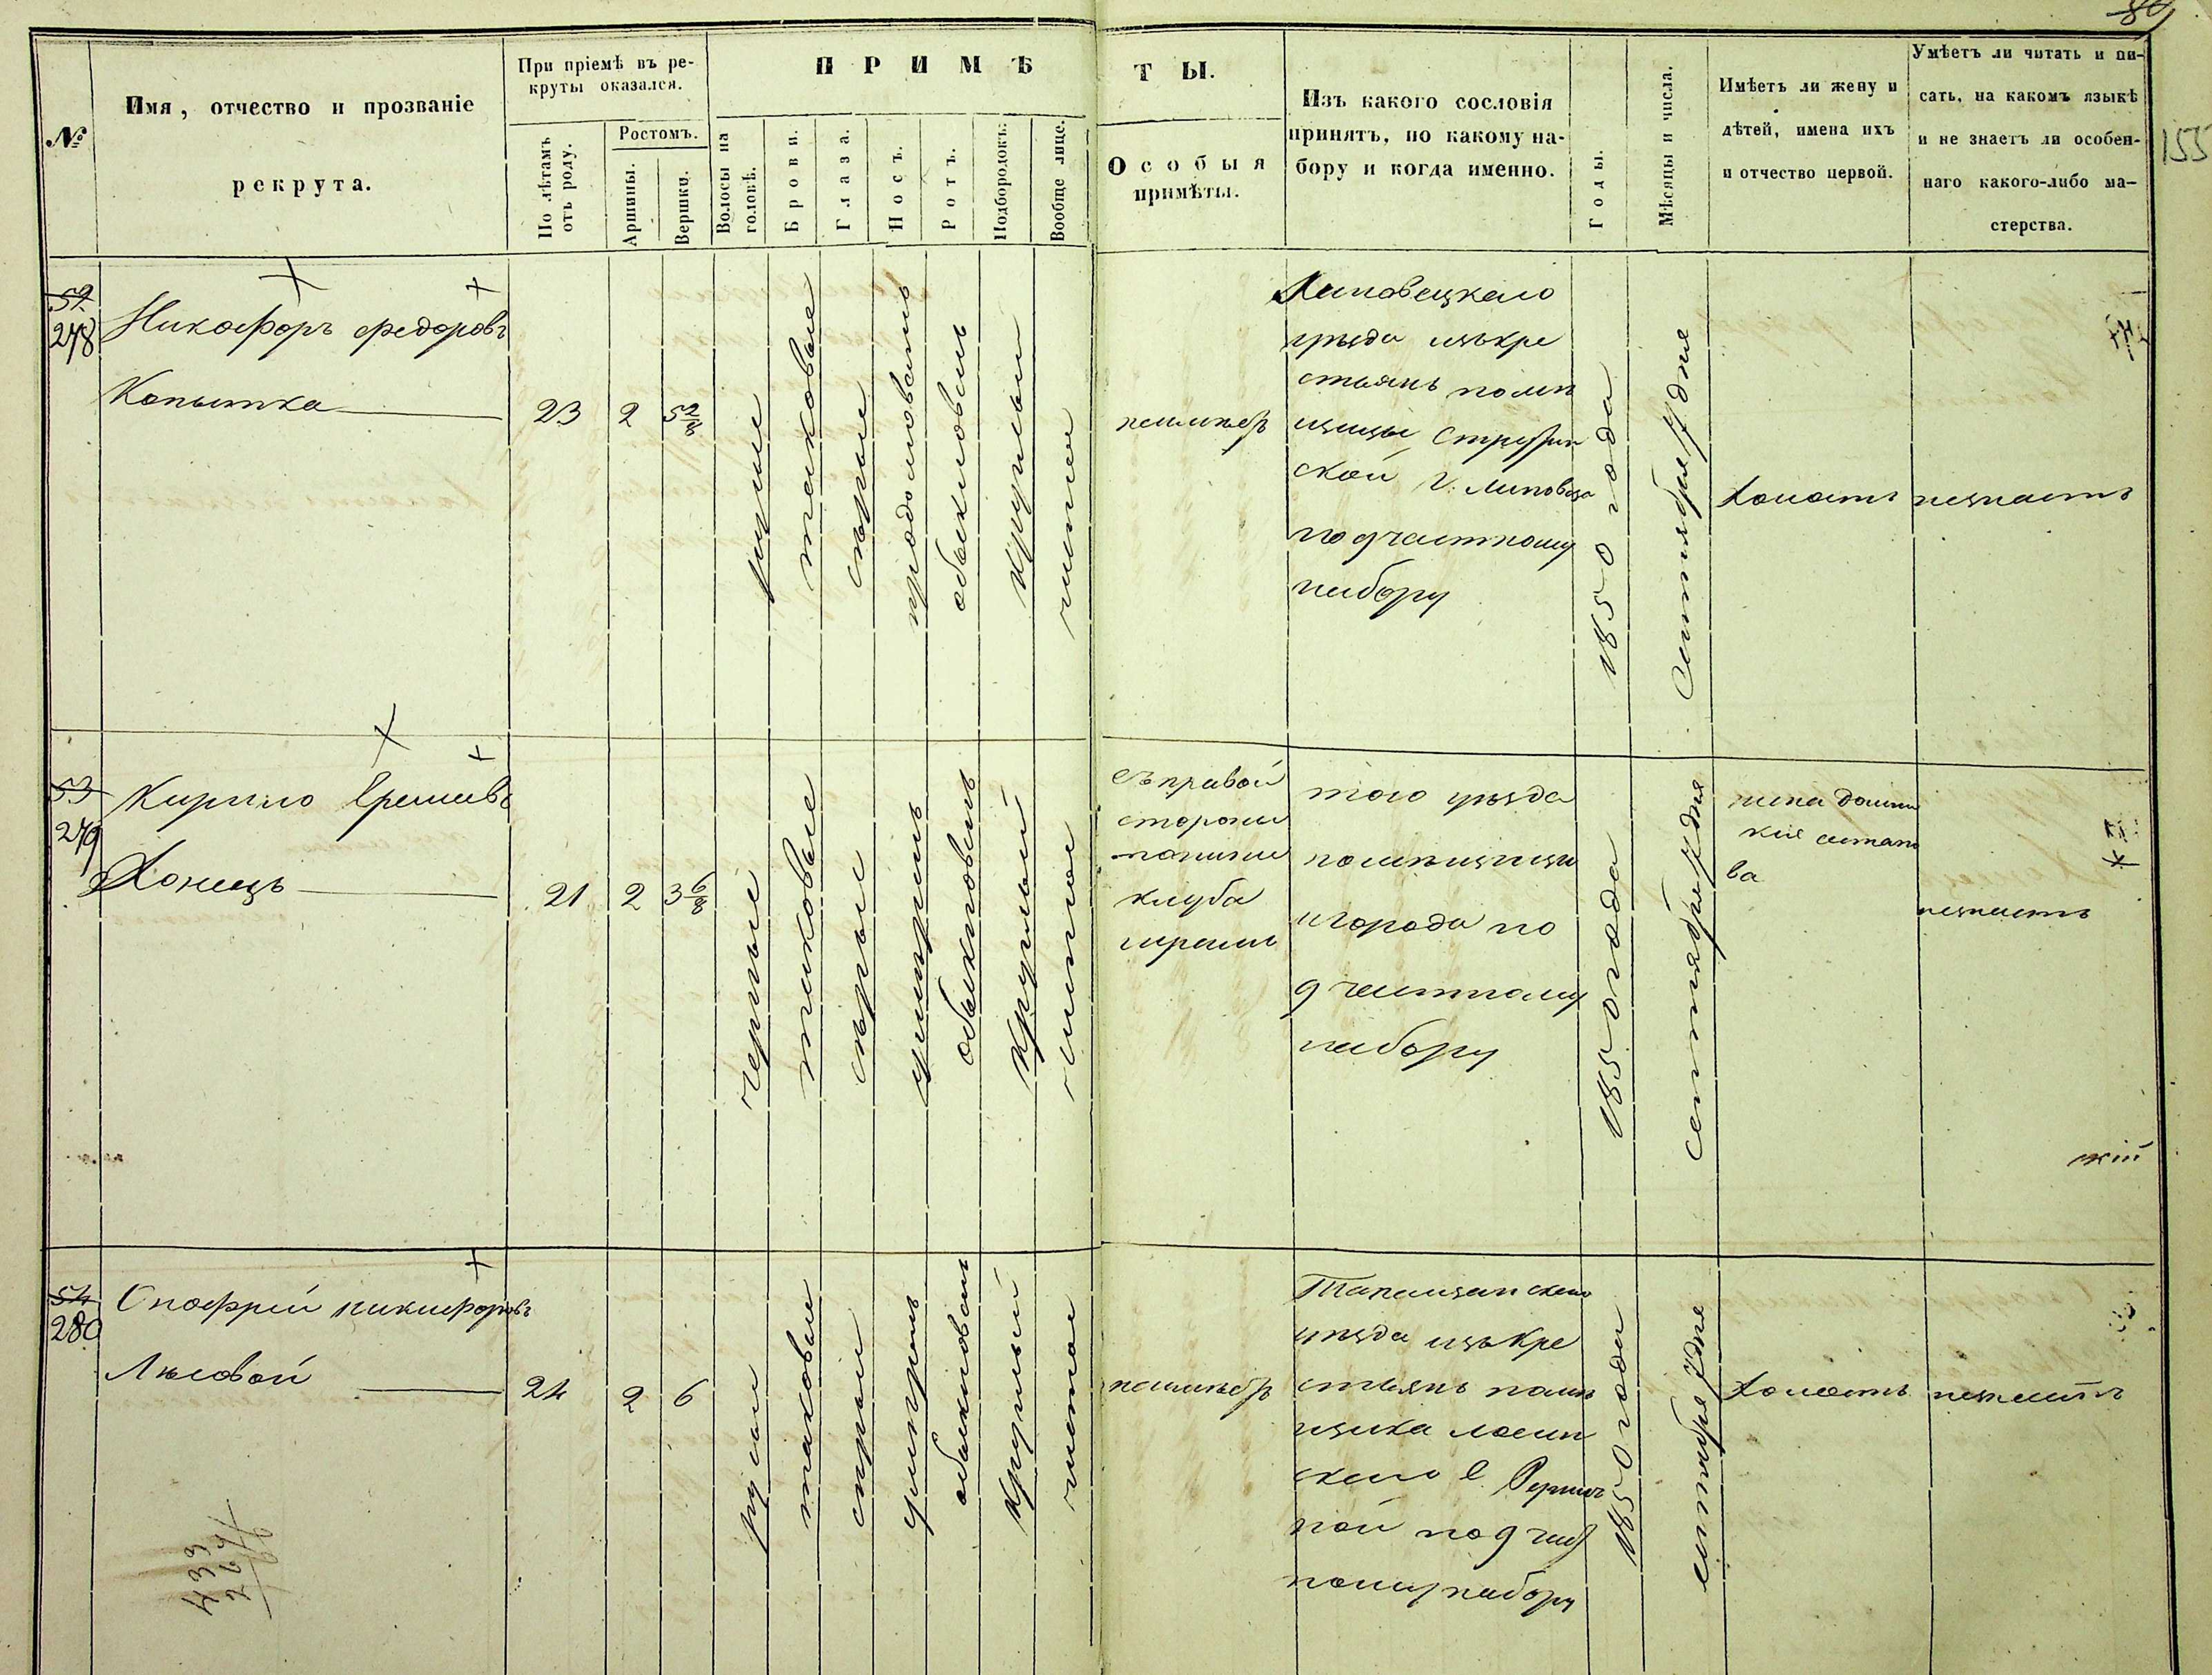 89
155
№
Имя, отчество и прозваніе
рекрута.
При пріемѣ въ ре-
круты оказался.
По лѣтамъ
отъ роду.
Ростомъ.
Аршины.
Вершки.
ПРИМѢ
Волосы на
головѣ.
Брови.
Глаза.
Носъ.
Ротъ.
Подбородокъ.
Вообще лице.
ТЫ.
Особыя
примѣты.
Изъ какого сословія
принятъ, по какому на-
бору и когда именно.
Годы.
Мѣсяцы и числа.
Имѣетъ ли жену и
дѣтей, имена ихъ
и отчество первой.
Умѣетъ ли читать и пи-
сать, на какомъ языкѣ
и не знаетъ ли особен-
наго какого-либо ма-
стерства.
278
Никофоръ федоровъ
Копытка
23
2
5 2/8
русые
таковые
сѣрые
обыкновенъ
круглый
чистое
Липовецкаго
уѣзда изъ кре
стьянъ помѣ
щицы
ской г. Липовца
по 9 частному
набору
1850 года
Сентября 7 дня
холостъ
незнаетъ
53
279
Кирило
Хонецъ
21
2
3 6/8
черные
таковые
сѣрые
умѣренъ
обыкновенъ
круглый
чистое
съ правой
стороны
того уѣзда
помѣщицы
игорода по
9 частному
набору
1850 года
сентября 7 дня
жена
незнаетъ
кій
54
280
Онофрей никифоровъ
Лѣсовой
24
2
6
русые
таковые
сѣрые
умѣренъ
обыкновенъ
круглый
чистое
Таращанскаго
уѣзда изъ кре
стьянъ помѣ
щика
по 9 час
ному набору
1850 года
сентября 7 дня
холостъ
незнаетъ